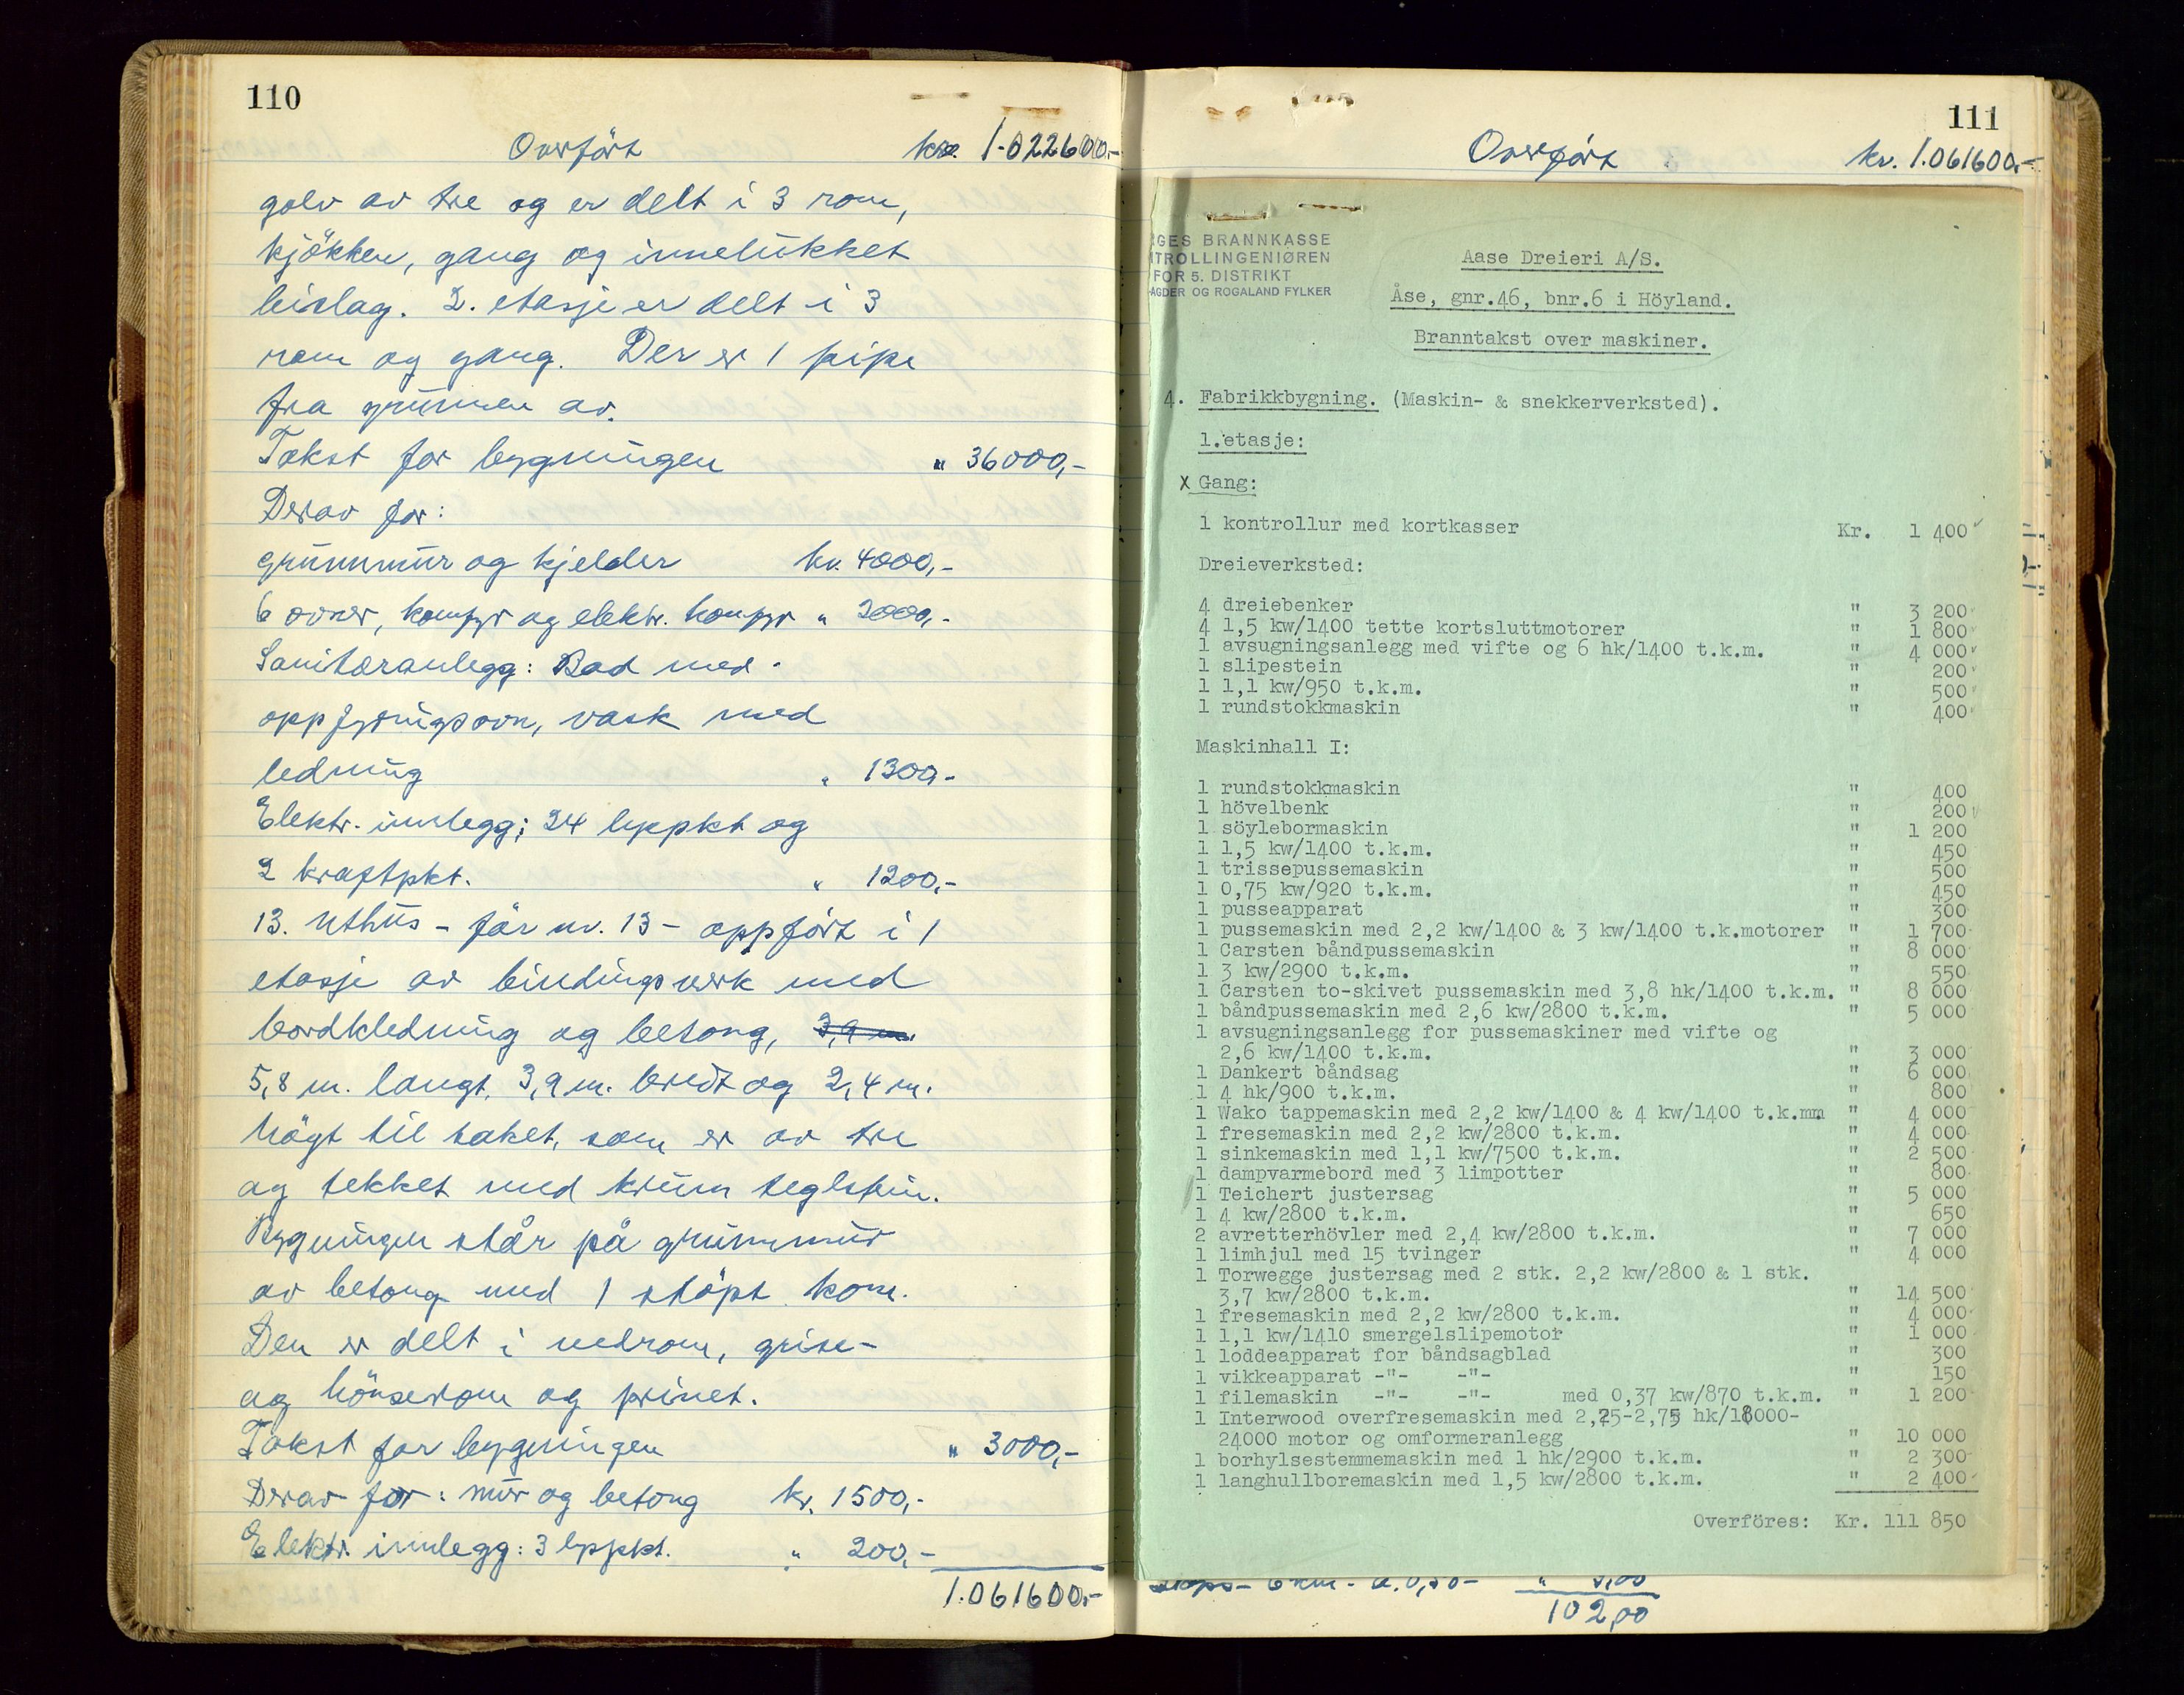 110
Overført kr. 1.022600,-
golv av tre og er delt i 3 rom,
kjökken, gang og innelukket
bislag. 2. etasje er delt i 3
rom og gang. Der er 1 pipe
fra grunnen av.
Takst for bygningen " 36000,-
Derav for:
grunnmur og kjelder kr. 4000,-
6 ovner, komfyr og elektr. komfyr " 2000,-
Sanitæranlegg: Bad med
oppfyringsovn, vask med
ledning " 1300,-
Elektr. innlegg; 24 lyspkt og
2 kraftpkt. " 1200,-
13. Uthus - för nr. 13 - oppfört i 1
etasje av bindingsverk med
bordkledning og betong, 3,9 m.
5,8 m. langt, 3,9 m. bredt og 2,4 m.
högt til taket, som er av tre
og tekket med krum teglstein.
Bygningen står på grunnmur
av betong med 1 stöpt kom.
Den er delt i vedrom, grise-
og hönserom og privet.
Takst for bygningen " 3000,-
Derav for: mur og betong kr. 1500,-
Elektr. innlegg: 3 lyspkt. " 200,-
1.061600,-
111
Overfört kr. 1.061600,-
GES BRANNKASSE
TROLLINGENIØREN
FOR 5. DISTRIKT
AGDER OG ROGALAND FYLKER
Aase Dreieri A/S.
Åse, gnr.46, bnr.6 i Höyland.
Branntakst over maskiner.
4. Fabrikkbygning. (Maskin- & snekkerverksted).
1.etasje:
x Gang:
1 kontrollur med kortkasser Kr. 1 400
Dreieverksted:
4 dreiebenker " 3 200
4 1,5 kw/1400 tette kortsluttmotorer " 1 800
1 avsugningsanlegg med vifte og 6 hk/1400 t.k.m. " 4 000
1 slipestein " 200
1 1,1 kw/950 t.k.m. " 500
1 rundstokkmaskin " 400
Maskinhall I:
1 rundstokkmaskin " 400
1 hövelbenk " 200
1 söylebormaskin " 1 200
1 1,5 kw/1400 t.k.m. " 450
1 trissepussemaskin " 500
1 0,75 kw/920 t.k.m. " 450
1 pusseapparat " 300
1 pussemaskin med 2,2 kw/1400 & 3 kw/1400 t.k.motorer " 1 700
1 Carsten båndpussemaskin " 8 000
1 3 kw/2900 t.k.m. " 550
1 Carsten to-skivet pussemaskin med 3,8 hk/1400 t.k.m. " 8 000
1 båndpussemaskin med 2,6 kw/2800 t.k.m. " 5 000
1 avsugningsanlegg for pussemaskiner med vifte og
2,6 kw/1400 t.k.m. " 3 000
1 Dankert båndsag " 6 000
1 4 hk/900 t.k.m. " 800
1 Wako tappemaskin med 2,2 kw/1400 & 4 kw/1400 t.k.mm " 4 000
1 fresemaskin med 2,2 kw/2800 t.k.m. " 4 000
1 sinkemaskin med 1,1 kw/7500 t.k.m. " 2 500
1 dampvarmebord med 3 limpotter " 800
1 Teichert justersag " 5 000
1 4 kw/2800 t.k.m. " 650
2 avretterhövler med 2,4 kw/2800 t.k.m. " 7 000
1 limhjul med 15 tvinger " 4 000
1 Torwegge justersag med 2 stk. 2,2 kw/2800 & 1 stk.
3,7 kw/2800 t.k.m. " 14 500
1 fresemaskin med 2,2 kw/2800 t.k.m. " 4 000
1 1,1 kw/1410 smergelslipemotor " 1 000
1 loddeapparat for båndsagblad " 300
1 vikkeapparat -"- -"- " 150
1 filemaskin -"- -"- med 0,37 kw/870 t.k.m. " 1 200
1 Interwood overfresemaskin med 2,25-2,75 hk/18000-
24000 motor og omformeranlegg " 10 000
1 borhylsestemmemaskin med 1 hk/2900 t.k.m. " 2 300
1 langhullboremaskin med 1,5 kw/2800 t.k.m. " 2 400
Overföres: Kr. 111 850
6 km. à 0,50 " 3,00
102,00